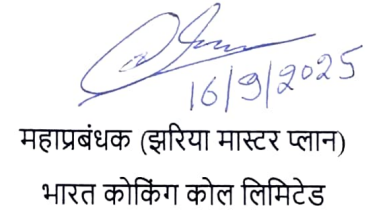 16/9/2025
महाप्रबंधक (झरिया मास्टर प्लान)
भारत कोकिंग कोल लिमिटेड